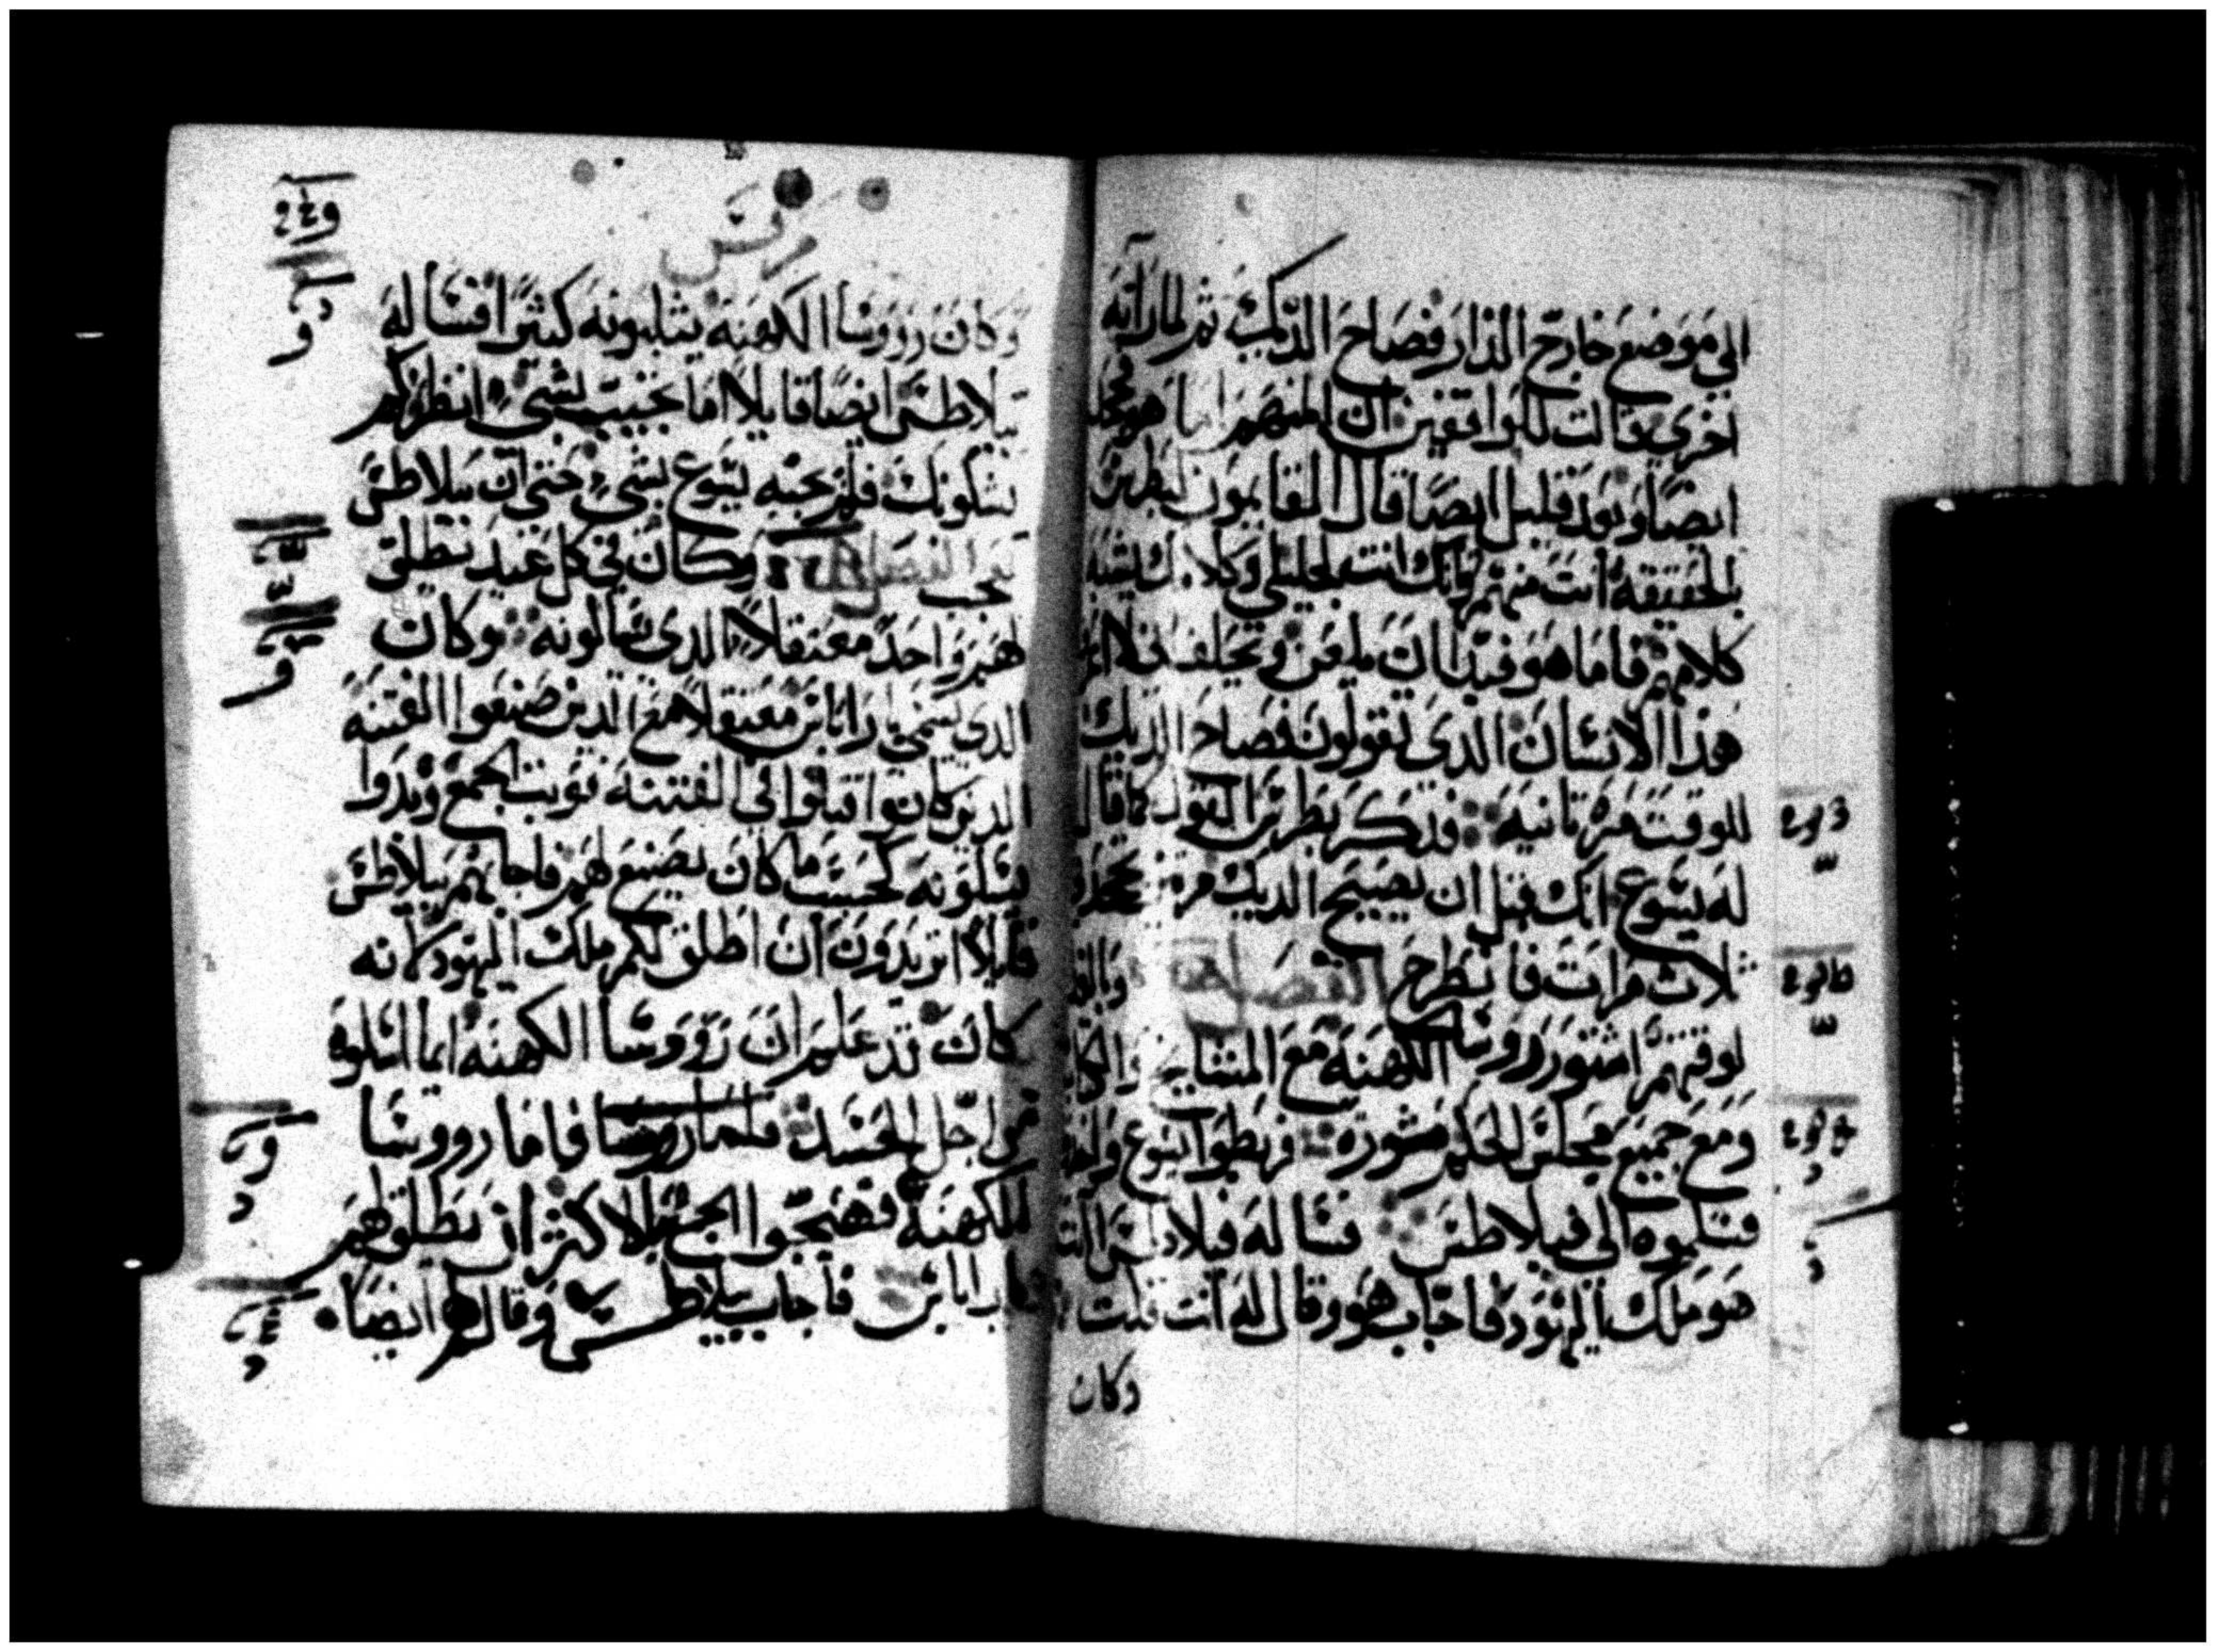 الي موضع خارج الدار فصاح الديك ثم لما راته
اخري قالت للواقفين ان منهم ايضا هو فجحد
ايضا وبعد قليل ايضا قال القايمون لبطرس
بالحقيقه انت منهم فانك انت جليلي وكلامك يشبه
كلامهم فاما هو فبدا ان يلعن ويحلف
هذا الانسان الذي تقولون فصاح الديك
للوقت مره ثانيه فذكر بطرس القول كما قال
له يسوع انك قبل ان يصيح الديك مره تجحد
ثلاث مرات فا الفصل وبالغد
لوقتهم اشتور رووسا الكهنه مع المشايخ والكتاب
ومع جميع مجلس الحكم مشوره فربطوا يسوع
فسلموه الى فيلاطس فساله فيلاطس انت
هو ملك اليهود فاجاب هو وقال له انت قلت
وكان
مرقس
وكان رووسا الكهنه يثلبونه كثيرا فساله
بيلاطس ايضا قايلا اما تجيب بشي انظر كم
يشكونك فلم يجبه يسوع بشي حتي ان بيلاطس
تعجب الفصل وكان في كل عيد يطلق
لهم واحد معتقلا الدي يسالونه وكان
الدي يسمي بارابان معتقلا مع الدين صنعوا الفتنه
الدين كانوا قتلوا في الفتنه فوثب الجمع وبدوا
يسلونه كحسب ما كان يصنع لهم فاجابهم بيلاطس
قايلا اتريدون ان اطلق لكم ملك اليهود لانه
كان قد علم ان رووسا الكهنه انما اسلموه
من اجل الحسد فلما رووسا فاما رووسا
الكهنه فهيجوا الجمع بالاكثر ان يطلق لهم
بارابان فاجاب بيلاطس وقال لهم ايضا